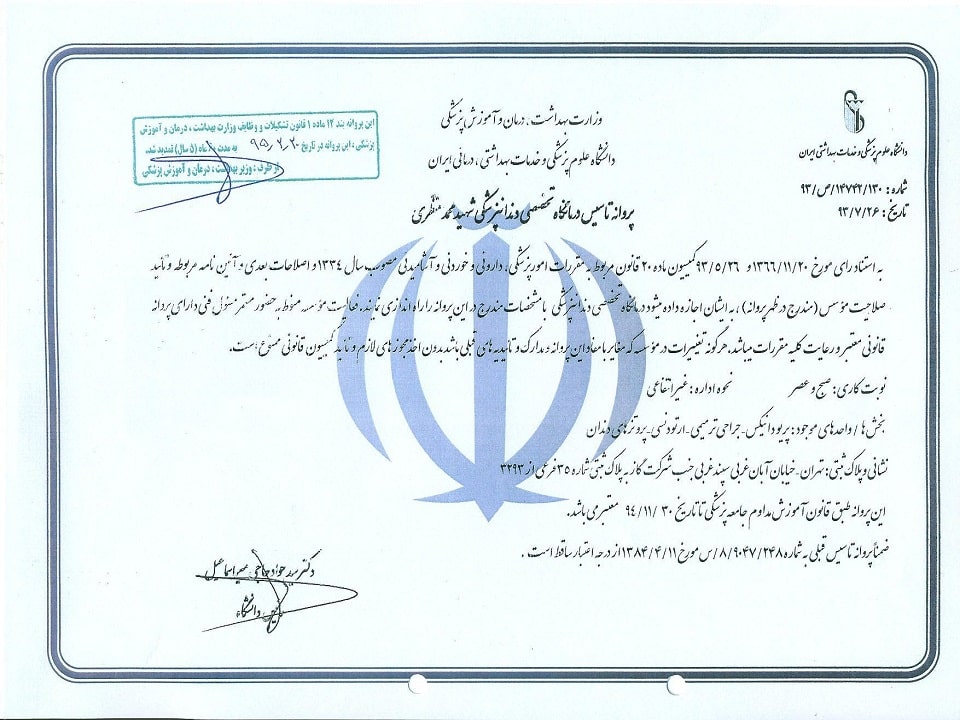 وزارت بهداشت، درمان و آموزش پزشکی
دانشگاه علوم پزشکی و خدمات بهداشتی، درمانی ایران
دانشگاه علوم پزشکی و خدمات بهداشتی ایران
شماره: ۱۴۷۴۲/۱۳۰/ص/۹۳
تاریخ: ۹۳/۷/۲۶
این پروانه بند ۱۲ ماده ۱ قانون تشکیلات و وظایف وزارت بهداشت، درمان و آموزش
پزشکی، این پروانه در تاریخ ۹۵/۲/۲۰ به مدت ماه (۵ سال) تمدید شد.
از طرف: وزیر بهداشت، درمان و آموزش پزشکی
پروانه تاسیس درمانگاه تخصصی دندانپزشکی شهید محمد منتظری
به استناد رای مورخ ۱۳۶۶/۱۱/۲۰ و ۹۳/۵/۲۶ کمیسیون ماده ۲۰ قانون مربوط به مقررات امور پزشکی، داروئی و خوردنی و آشامیدنی مصوب سال ۱۳۳۴ و اصلاحات بعدی و آئین نامه مربوطه و تائید
صلاحیت مؤسس (مندرج در ظهر پروانه)، به ایشان اجازه داده میشود درمانگاه تخصصی دندانپزشکی با مشخصات مندرج در این پروانه را راه اندازی نمایند. فعالیت مؤسسه منوط به حضور مستمر مسئول فنی دارای پروانه
قانونی معتبر و رعایت کلیه مقررات میباشد. هرگونه تغییرات در مؤسسه که مغایر با مفاد این پروانه و مدارک و تائیدیه های قبلی باشد بدون اخذ مجوزهای لازم و تائید کمیسیون قانونی ممنوع است.
نوبت کاری: صبح و عصر نحوه اداره: غیرانتفاعی
بخش ها / واحدهای موجود: پریودانتیکس-جراحی ترمیمی-ارتودنسی-پروتزهای دندان
نشانی و پلاک ثبتی: تهران-خیابان آبان غربی سپند غربی جنب شرکت گاز به پلاک ثبتی شماره ۳۵ فرعی از ۳۲۹۳
این پروانه طبق قانون آموزش مداوم جامعه پزشکی تا تاریخ ۹۴/۱۱/۳۰ معتبر می باشد.
ضمناً پروانه تاسیس قبلی به شماره ۸/۹۰۴۷/۲۴۸/س مورخ ۱۳۸۴/۴/۱۱ از درجه اعتبار ساقط است.
دکتر سید جواد حاجی میراسماعیل
رئیس دانشگاه